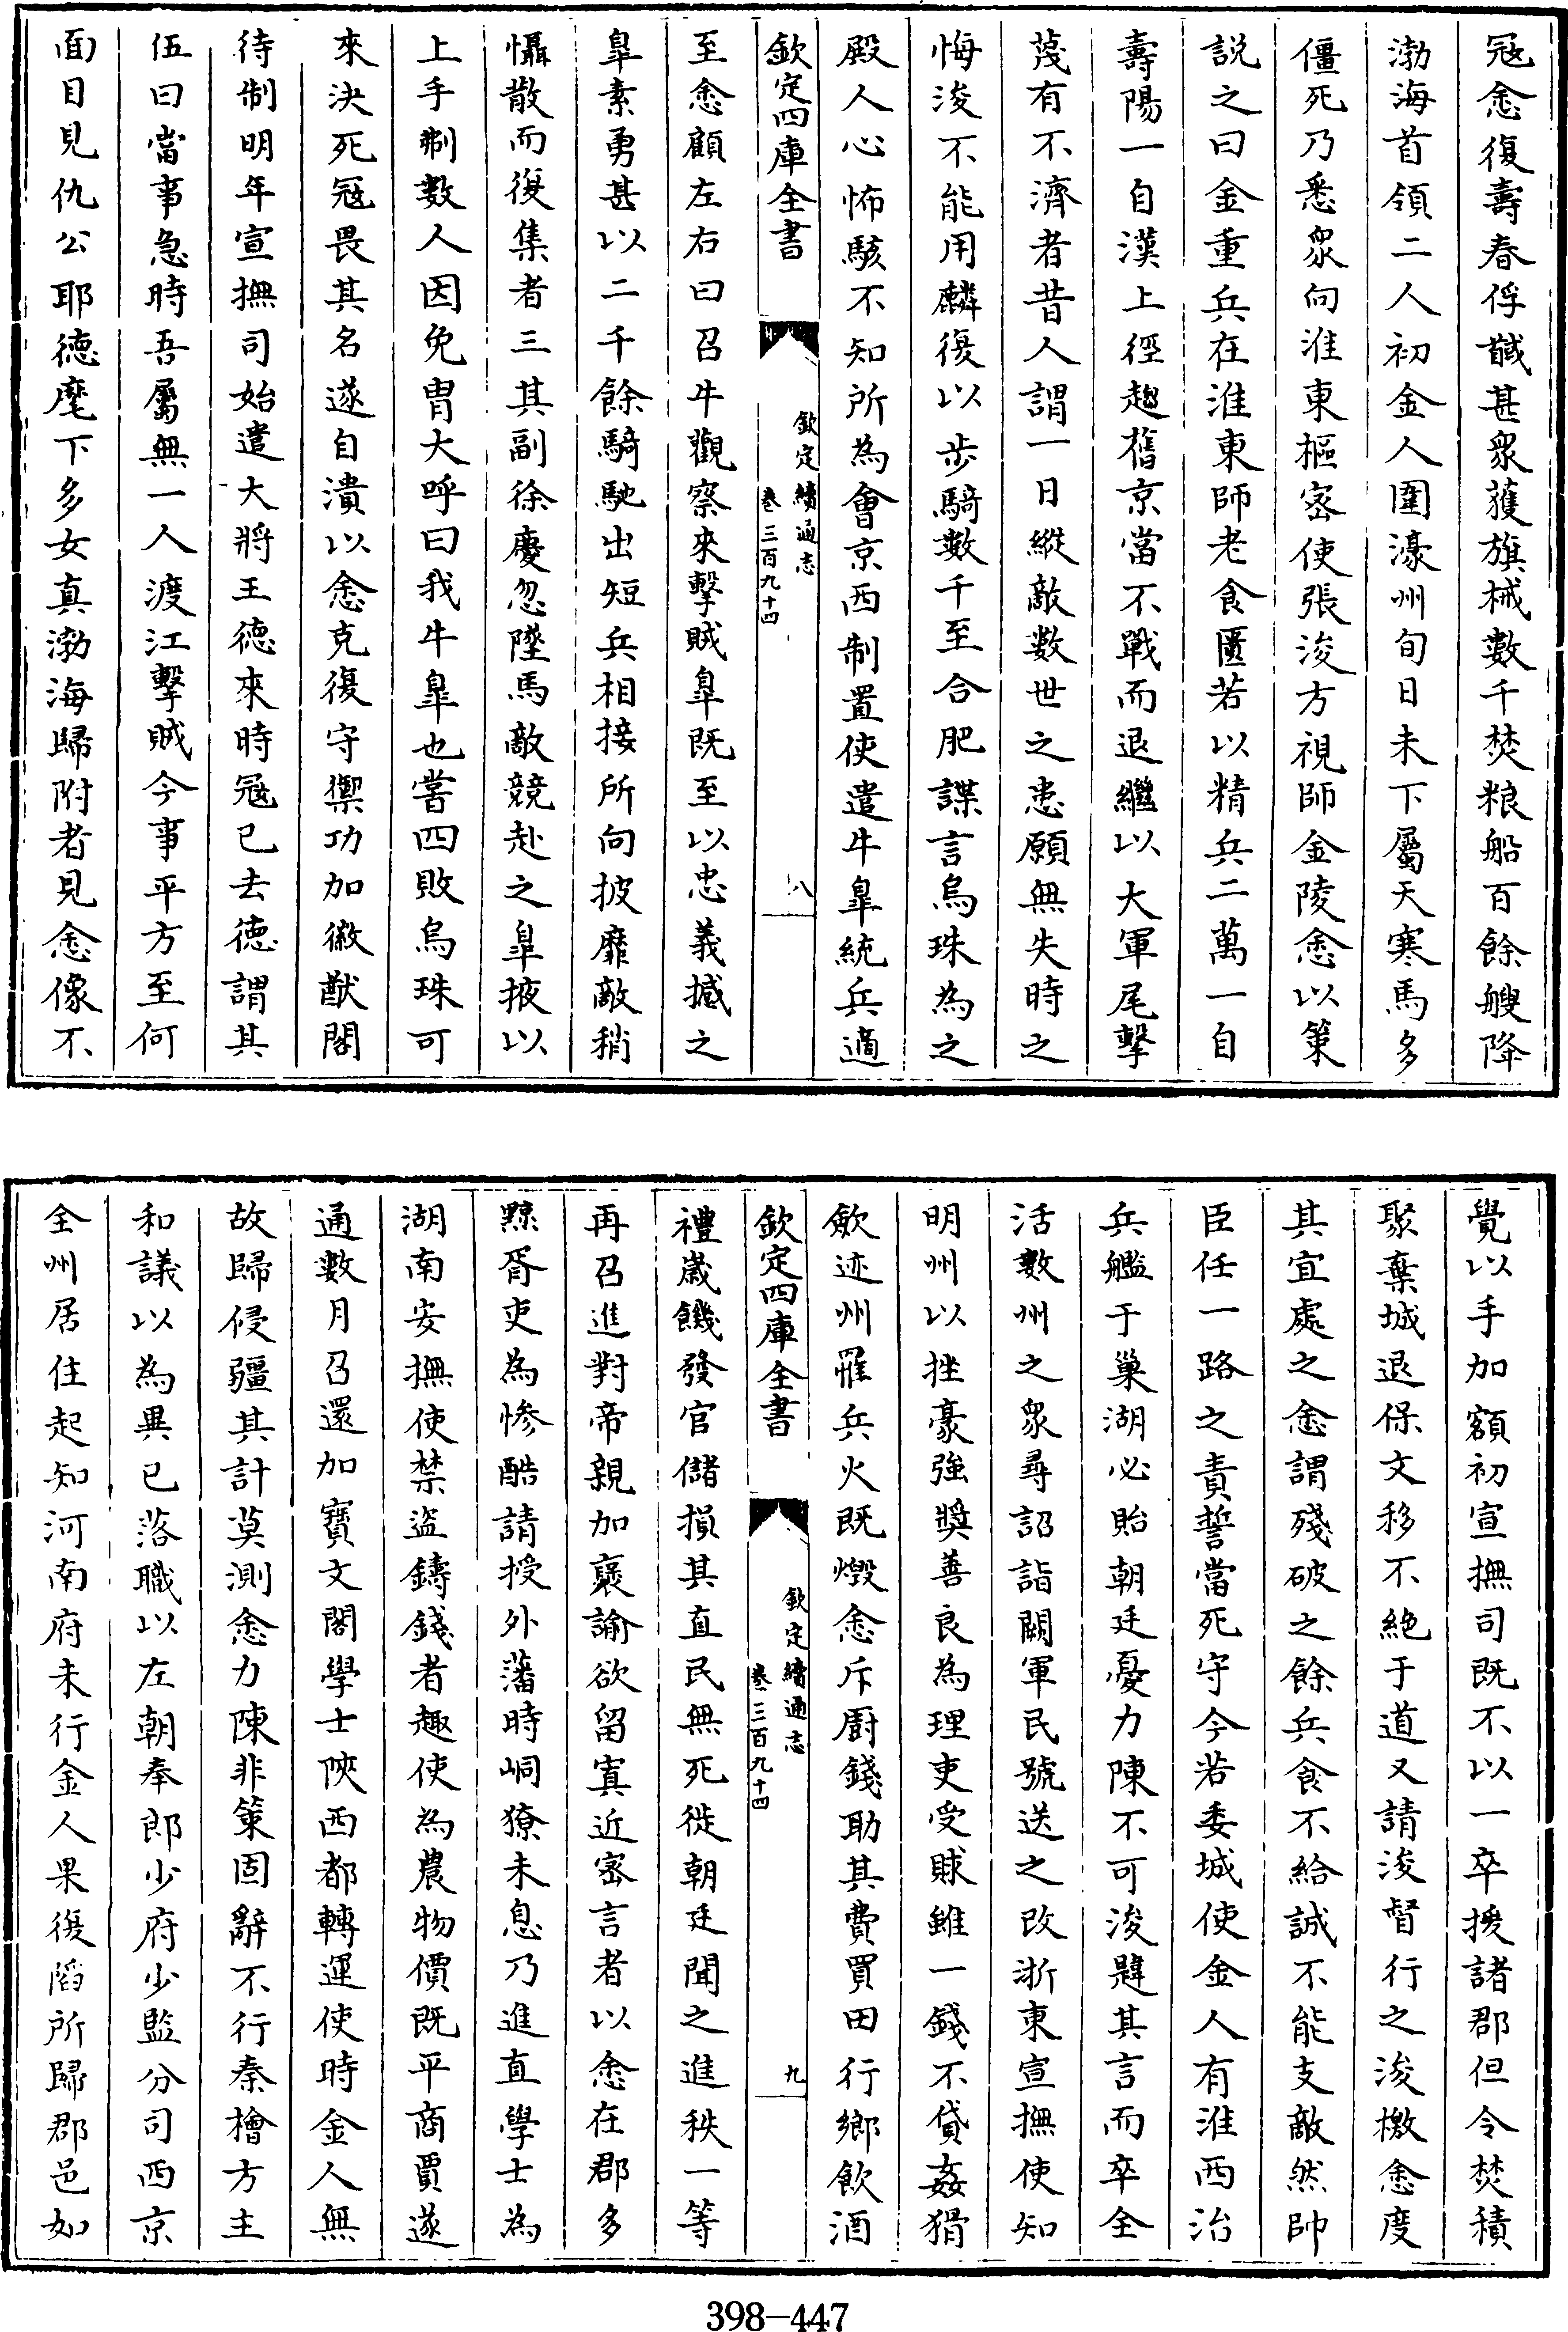 冦悆復壽春俘馘甚衆獲旗械數千焚粮船百餘艘降
渤海首領二人初金人圍濠州旬日未下屬天寒馬多
僵死乃悉衆向淮東樞宻使張浚方視師金陵悆以策
説之曰金重兵在淮東師老食匱若以精兵二萬一自
壽陽一自漢上徑趨舊京當不戰而退繼以大軍尾擊
蔑有不濟者昔人謂一日縱敵數世之患願無失時之
悔浚不能用麟復以步騎數千至合肥諜言烏珠為之
殿人心怖駭不知所為會京西制置使遣牛臯統兵適
欽定四庫全書
欽定續通志
卷三百九十四
八
至悆顧左右曰召牛觀察來擊賊臯既至以忠義撼之
臯素勇甚以二千餘騎馳出短兵相接所向披靡敵稍
懾散而復集者三其副徐慶忽墜馬敵競赴之臯掖以
上手剸數人因免胄大呼曰我牛臯也嘗四敗烏珠可
來決死冦畏其名遂自潰以悆克復守禦功加徽猷閣
待制明年宣撫司始遣大將王德來時冦已去德謂其
伍曰當事急時吾屬無一人渡江擊賊今事平方至何
面目見仇公耶德麾下多女真渤海歸附者見悆像不
覺以手加額初宣撫司既不以一卒援諸郡但令焚積
聚棄城退保文移不絶于道又請浚督行之浚檄悆度
其宜處之悆謂殘破之餘兵食不給誠不能支敵然帥
臣任一路之責誓當死守今若委城使金人有淮西治
兵艦于巢湖必貽朝廷憂力陳不可浚韙其言而卒全
活數州之衆尋詔詣闕軍民號送之改浙東宣撫使知
明州以挫豪強奬善良為理吏受賕雖一錢不貸姦猾
歛迹州罹兵火既燬悆斥厨錢助其費買田行鄉飲酒
欽定四庫全書
欽定續通志
卷三百九十四
九
禮嵗饑發官儲損其直民無死徙朝廷聞之進秩一等
再召進對帝親加襃諭欲留寘近宻言者以悆在郡多
黥胥吏為慘酷請授外藩時峒獠未息乃進直學士為
湖南安撫使禁盜鑄錢者趣使為農物價既平商賈遂
通數月召還加寶文閣學士陜西都轉運使時金人無
故歸侵疆其計莫測悆力陳非策固辭不行秦檜方主
和議以為異己落職以左朝奉郎少府少監分司西京
全州居住起知河南府未行金人果復䧟所歸郡邑如
398-447